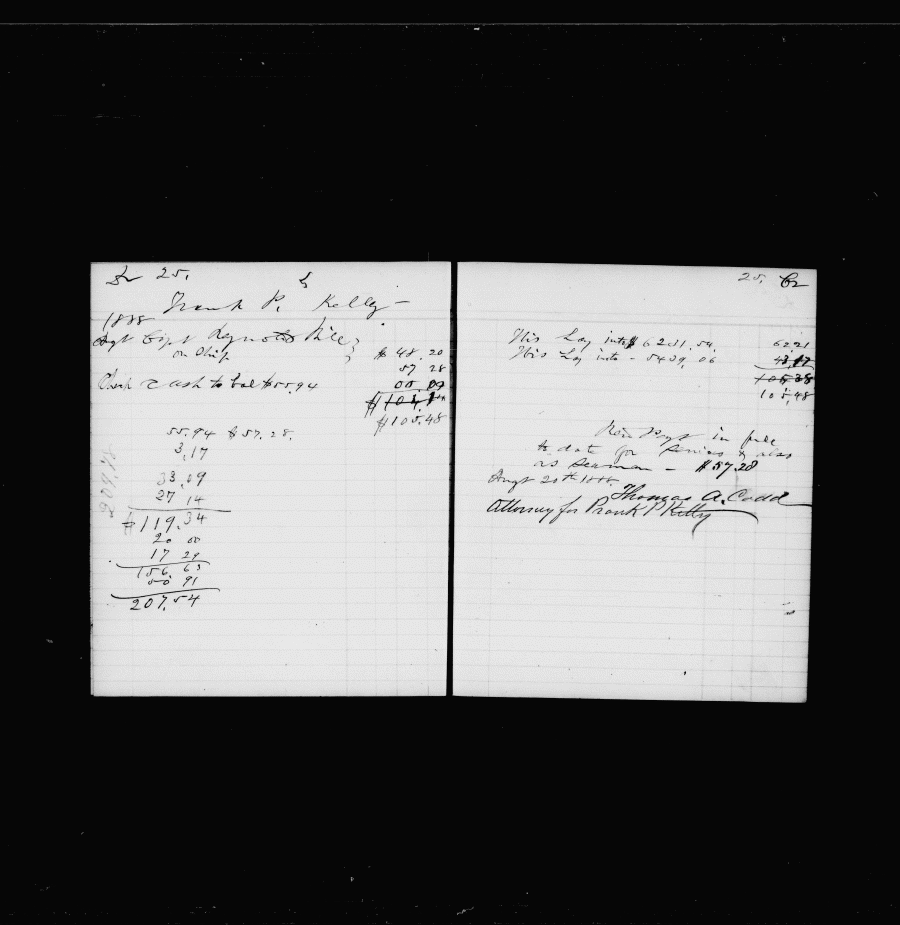 Dr 25.
Frank P. Kelly -
1888
Augt Capt Reynolds Bill
on Ship $ 48.20
57 28
Check cash to bal $55.94
$105.48
55.94 $57.28.
3.17
33.09
27 14
$119.34
20 00
17 29
156 63
50 91
207.54
25. Cr
His Lay into $6281.54. 62.21
His Lay into - 5439.06 43.17
105.38
105.48
Recd Payt in full
to date for Services & also
as Seaman - $57.28
Augt 20th 1888.
Thomas A. Codd
Attorney for Frank P Kelly